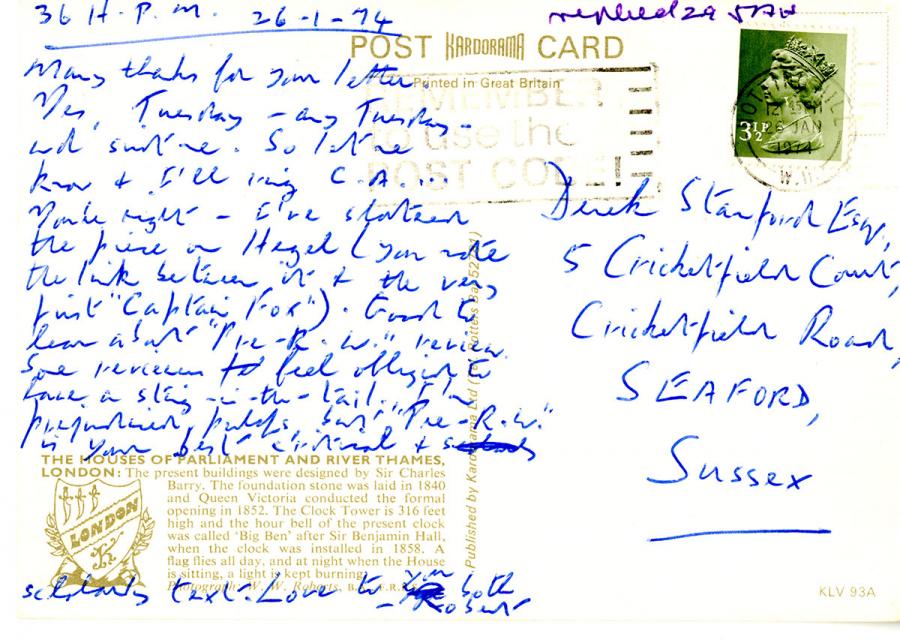 36 H.P.M. 26-1-74
replied 29 JAN
POST KARDORAMA CARD
Printed in Great Britain
REMEMBER
to use the
POST CODE!
3½P
26 JAN
1974
W.11
Many thanks for your letter.
Yes, Tuesday - any Tuesday -
will suit me. So let me
know & I'll ring C.A....
You're right - I've shortened
the piece on Hegel (you note
the link between it & the very
first "Captain Fox"). Good to
hear about "Pre-R.W." review.
Some reviewers feel obliged to
have a sting-in-the-tail. I'm
prejudiced, perhaps, but "Pre-R.W."
is your best critical &
scholarly text. Love to you both
- Robert
Derek Stanford Esq,
5 Cricketfield Court,
Cricketfield Road,
SEAFORD,
Sussex
THE HOUSES OF PARLIAMENT AND RIVER THAMES,
LONDON: The present buildings were designed by Sir Charles
Barry. The foundation stone was laid in 1840
and Queen Victoria conducted the formal
opening in 1852. The Clock Tower is 316 feet
high and the hour bell of the present clock
was called 'Big Ben' after Sir Benjamin Hall,
when the clock was installed in 1858. A
flag flies all day, and at night when the House
is sitting, a light is kept burning.
Photograph: W. W. Roberts,
LONDON
Published by Kardorama Ltd
KLV 93A